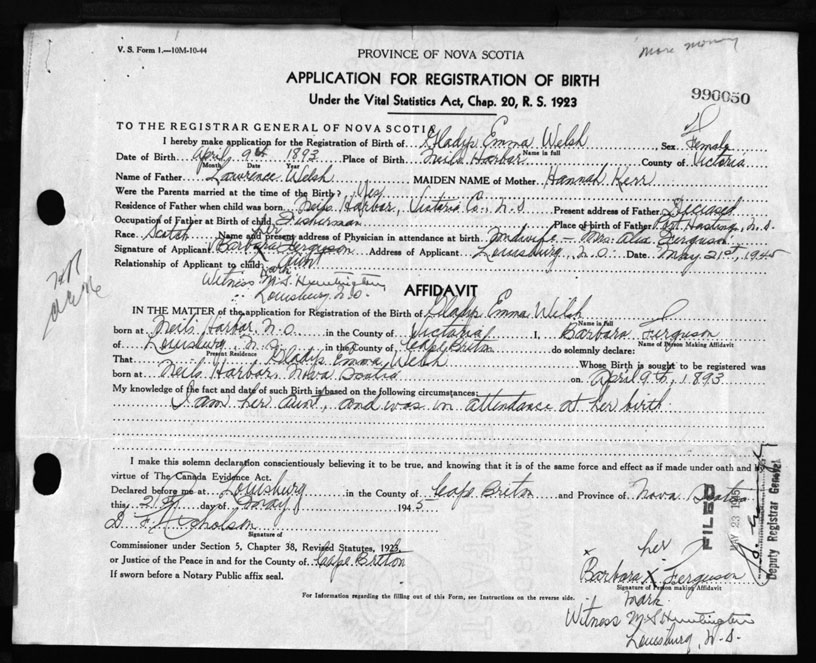 V. S. Form 1.—10M-10-44
more money
PROVINCE OF NOVA SCOTIA
APPLICATION FOR REGISTRATION OF BIRTH
990050
Under the Vital Statistics Act, Chap. 20, R. S. 1923
TO THE REGISTRAR GENERAL OF NOVA SCOTIA
I hereby make application for the Registration of Birth of Gladys Emma Welsh Sex Female
Name in full
Date of Birth April 9th 1893 Place of Birth Neils Harbor County of Victoria
Month Date Year
Name of Father Lawrence Welsh MAIDEN NAME of Mother Hannah Kerr
Were the Parents married at the time of the Birth? Yes
Residence of Father when child was born Neils Harbor, Victoria Co., N.S Present address of Father Deceased
Occupation of Father at Birth of child Fisherman Place of birth of Father Port Hastings, N.S.
Race Scotch Name and present address of Physician in attendance at birth Midwife — Mrs. Alex Ferguson
Signature of Applicant Barbara Her X Ferguson Address of Applicant Louisburg, N.S. Date May 21st, 1945
Relationship of Applicant to child Aunt mark
Witness M S Huntington
Louisburg N.S.
AFFIDAVIT
IN THE MATTER of the application for Registration of the Birth of Gladys Emma Welsh
Name in full
born at Neils Harbor N.S in the County of Victoria I, Barbara Ferguson
Name of Person Making Affidavit
of Louisburg, N.S. in the County of Cape Breton do solemnly declare:
Present Residence
That Gladys Emma Welsh Whose Birth is sought to be registered was
born at Neils Harbor, Nova Scotia on April 9th, 1893
My knowledge of the fact and date of such Birth is based on the following circumstances:
I am her aunt, and was in attendance at her birth.
I make this solemn declaration conscientiously believing it to be true, and knowing that it is of the same force and effect as if made under oath and by
virtue of The Canada Evidence Act.
Declared before me at Louisburg in the County of Cape Breton and Province of Nova Scotia
this 21st day of May 1945
Signature of
Commissioner under Section 5, Chapter 38, Revised Statutes, 1923,
or Justice of the Peace in and for the County of Cape Breton
If sworn before a Notary Public affix seal.
her
x Barbara X Ferguson
Signature of Person making Affidavit
mark
For Information regarding the filling out of this Form, see Instructions on the reverse side.
Witness M S Huntington
Louisburg, N.S.
FILED
MAY 23 1945
Deputy Registrar General